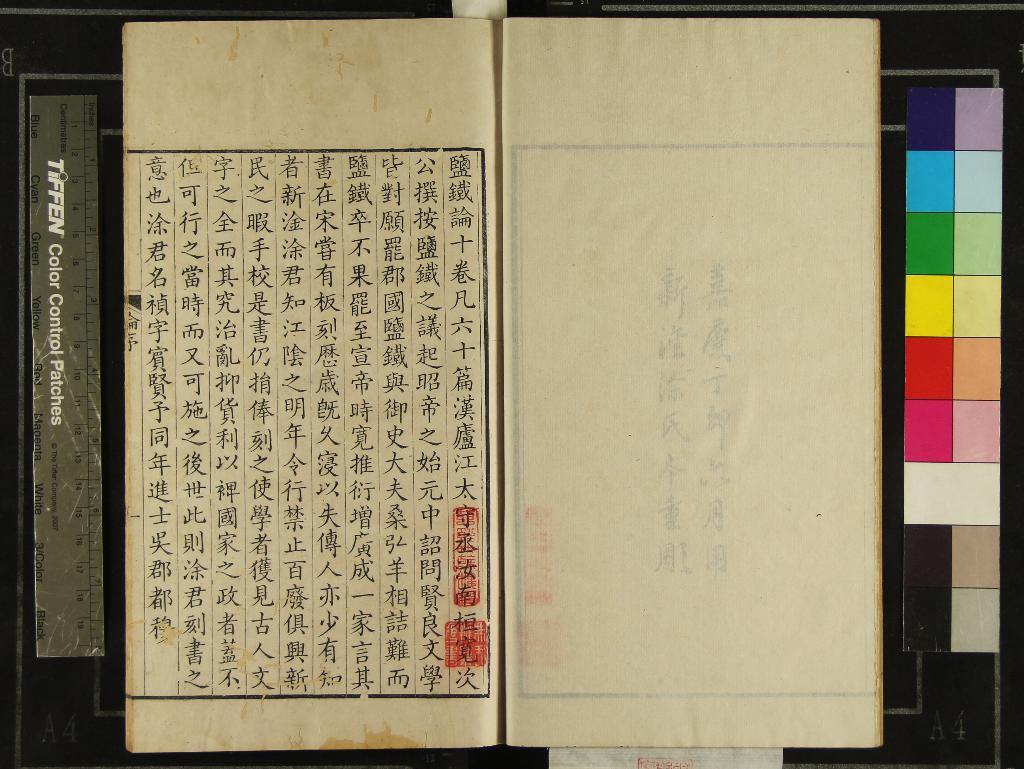 嘉慶丁卯六月用
新淦涂氏本重彫
鹽鐵論十卷凡六十篇漢廬江太守丞汝南桓寬次
公撰按鹽鐵之議起昭帝之始元中詔問賢良文學
皆對願罷郡國鹽鐵與御史大夫桑弘羊相詰難而
鹽鐵卒不果罷至宣帝時寬推衍增廣成一家言其
書在宋嘗有板刻歷歲旣久寖以失傳人亦少有知
者新淦涂君知江陰之明年令行禁止百廢俱興新
民之暇手校是書仍捐俸刻之使學者獲見古人文
字之全而其究治亂抑貨利以裨國家之政者蓋不
但可行之當時而又可施之後世此則涂君刻書之
意也涂君名禎字賓賢予同年進士吳郡都穆
論序
一
Inches
Centimetres
TIFFEN Color Control Patches
© The Tiffen Company, 2007
Blue
Cyan
Green
Yellow
Red
Magenta
White
3/Color
Black
B
A4
A4